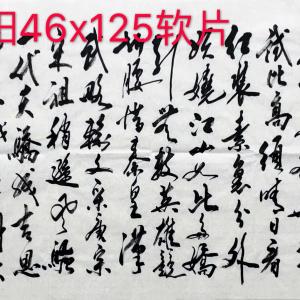 46x125软片
試比高須晴日看
红装素裹分外
妖娆江山如此多嬌
引无数英雄競
折腰惜秦皇漢
武略輸文采唐宗
宋祖稍逊风骚
一代天驕成吉思